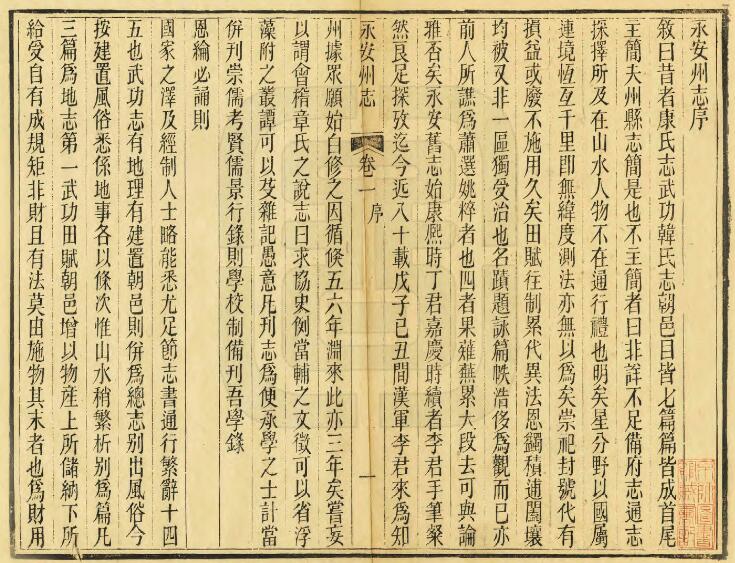 永安州志序
敘曰昔者康氏志武功韓氏志朝邑目皆七篇篇皆成首尾
主簡夫州縣志簡是也不主簡者曰非詳不足備府志通志
採擇所及在山水人物不在通行禮也明矣星分野以國屬
連境恆互千里即無緯度測法亦無以爲矣崇祀封號代有
損益或廢不施用久矣田賦往制累代異法恩蠲積逋闔壤
均被又非一區獨受治也名蹟題詠篇帙浩侈爲觀而已亦
前人所譙爲蕭選姚粹者也四者果薙蕪累大段去可與論
雅否矣永安舊志始康熙時丁君嘉慶時續者李君手筆粲
然良足採攷迄今近八十載戊子己丑間漢軍李君來爲知
永安州志
卷一
序
一
州據眾願始白修之因循倏五六年淵來此亦三年矣嘗妄
以謂會稽章氏之說志曰求協史例當輔之文徵可以省浮
藻附之叢譚可以芟雜記愚意凡刊志爲便承學之士計當
併刊崇儒考賢儒景行錄則學校制備刊吾學錄
恩綸必誦則
國家之澤及經制人士略能悉尤足節志書通行繁辭十四
五也武功志有地理有建置朝邑則併爲總志別出風俗今
按建置風俗悉係地事各以條次惟山水稍繁析別爲篇凡
三篇爲地志第一武功田賦朝邑增以物産上所儲納下所
給受自有成規矩非財且有法莫由施物其末者也爲財用